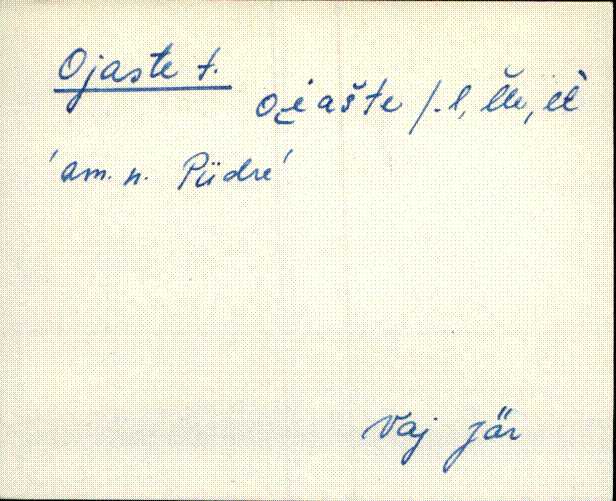 Ojaste t.
oi̯ašte /-l, lle, lt
'am. n. Püdre'
Vaj jär